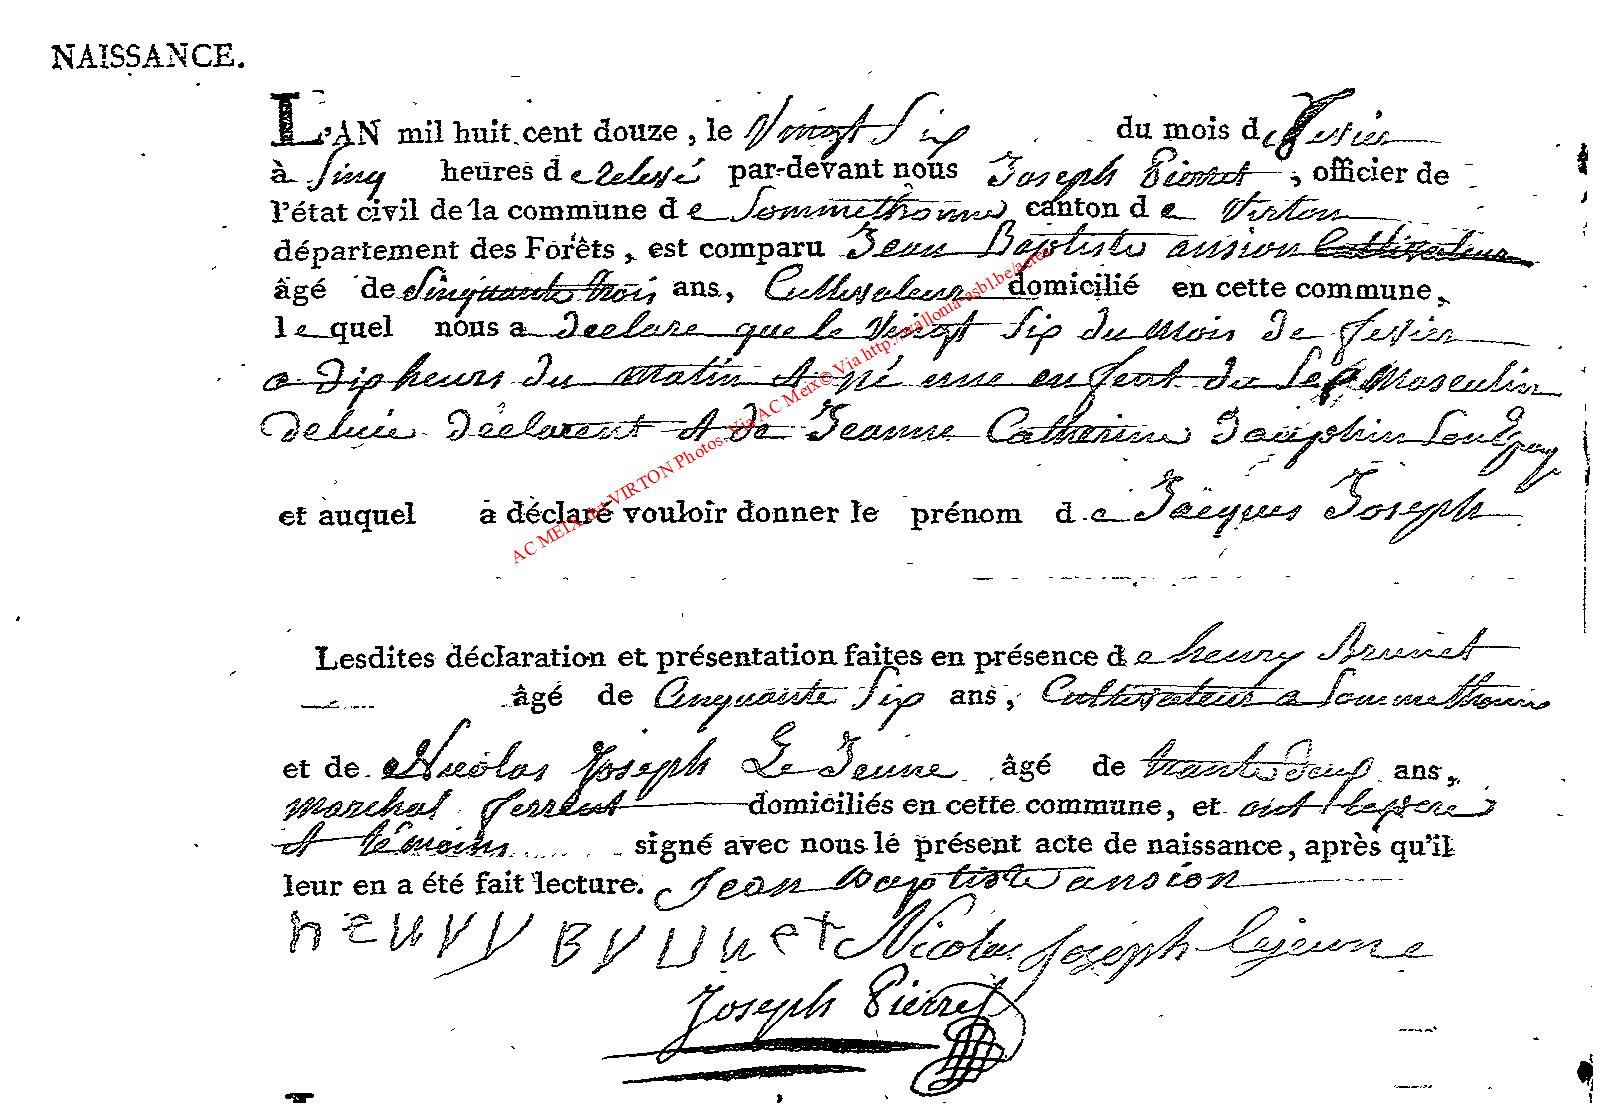 NAISSANCE.
L'AN mil huit cent douze, le Vingt Six du mois de fevier
à Sinq heures de relevé par-devant nous Joseph Pierret, officier de
l'état civil de la commune de Sommethonne canton de Virton
département des Forêts, est comparu Jean Baptiste ansion Cultivateur
âgé de Sinquante trois ans, Cultivateur domicilié en cette commune,
le quel nous a declare que le Vingt Six du mois de fevier
a dix heurs du matin et né une enfent du Sex Masculin
de luie déclarent et de Jeanne Catherine Dauphin Son Epouse
et auquel a déclaré vouloir donner le prénom de Jacques Joseph
Lesdites déclaration et présentation faites en présence de henry Brunet
âgé de Cinquante Six ans, Cultivateur a Sommethonne
et de Nicolas Joseph Le Jeune âgé de trante deux ans,
marchal ferrent domiciliés en cette commune, et ont le pere
et témoins signé avec nous le présent acte de naissance, après qu'il
leur en a été fait lecture. Jean Baptiste ansion
henry Brunet Nicolas Joseph lejeune
Joseph Pierret
AC MEIX dvt VIRTON Photos. Via AC Meix© Via http://wallonia-asbl.be/actes